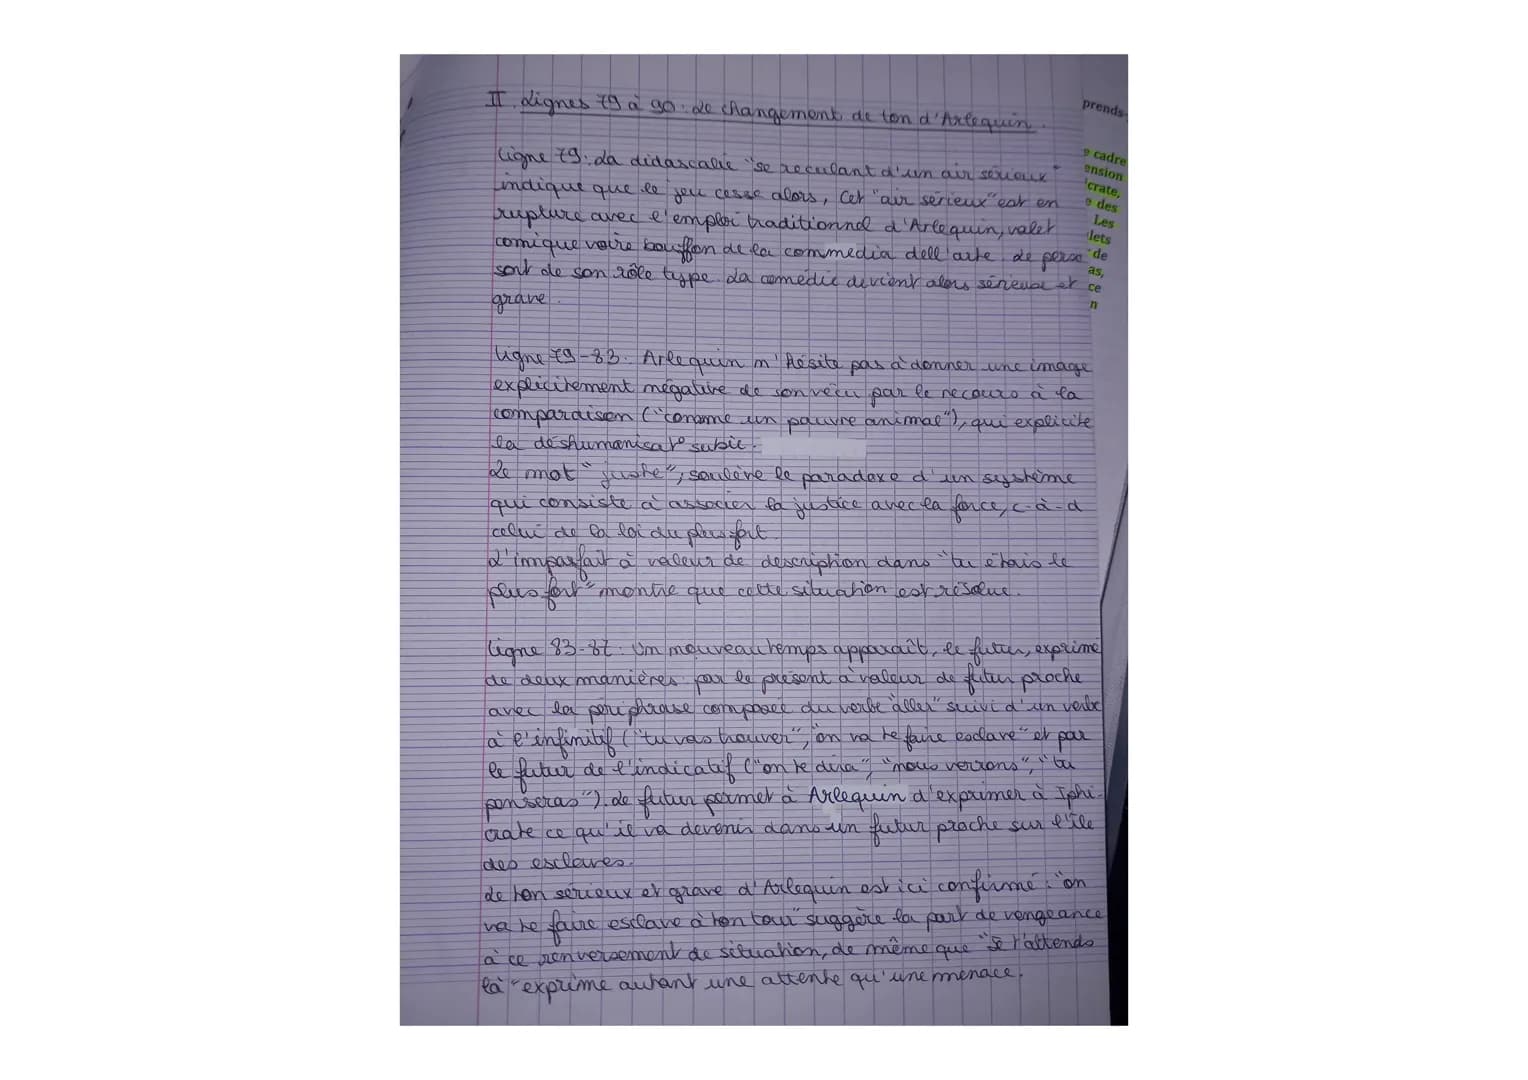 II. Lignes 79 à 90: Le changement de ton d'Arlequin.
prends-
Ligne 79: La didascalie "se reculant d'un air sérieux"
indique que le jeu cesse alors, Cet "air sérieux" est en
rupture avec l'emploi traditionnel d'Arlequin, valet
comique voire bouffon de la commedia dell'arte. Le perso
sort de son rôle type. La comédie devient alors sérieuse et
grave.
e cadre
ension
icrate,
e des
Les
lets
de
as,
ce
n
Ligne 79-83. Arlequin n'hésite pas à donner une image
explicitement négative de son vécu par le recours à la
comparaison ("comme un pauvre animal"), qui explicite
la déshumanisat° subie.
Le mot "juste", soulève le paradoxe d'un système
qui consiste à associer la justice avec la force, c-à-d
celui de la loi du plus fort.
L'imparfait à valeur de description dans "tu étais le
plus fort" montre que cette situation est résolue.
Ligne 83-87. Un nouveau temps apparaît, le futur, exprimé
de deux manières: par le présent à valeur de futur proche
avec la périphrase composée du verbe "aller" suivi d'un verbe
à l'infinitif ("tu vas trouver", "on va te faire esclave" et par
le futur de l'indicatif ("on te dira", "nous verrons", "tu
penseras"). Le futur permet à Arlequin d'exprimer à Iphi-
crate ce qu'il va devenir dans un futur proche sur l'île
des esclaves.
Le ton sérieux et grave d'Arlequin est ici confirmé: "on
va te faire esclave à ton tour" suggère la part de vengeance
à ce renversement de situation, de même que "je t'attends
là" exprime autant une attente qu'une menace.